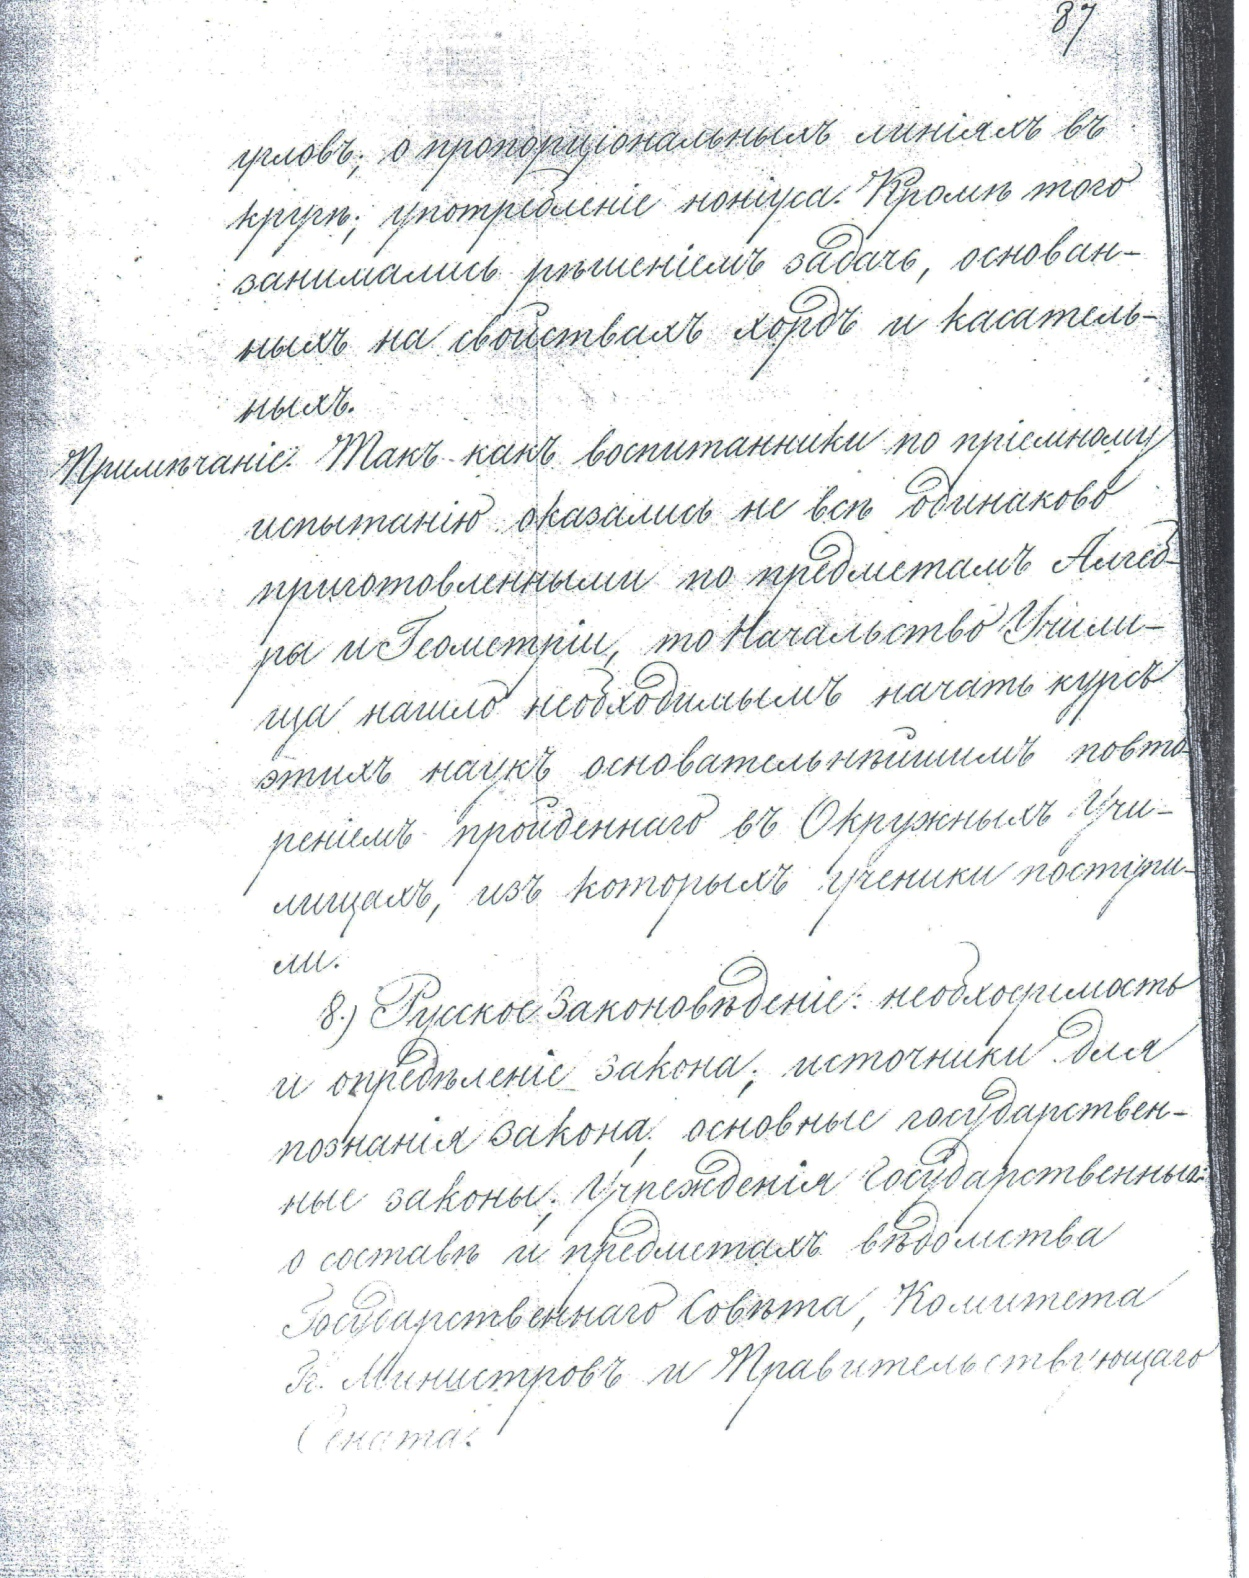 87
угловъ; о пропорціональныхъ линіяхъ въ
кругѣ; употребленіе ноніуса. Кромѣ того
занимались рѣшеніемъ задачъ, основан-
ныхъ на свойствахъ хордъ и касатель-
ныхъ.
Примѣчаніе. Такъ какъ воспитанники по пріемному
испытанію оказались не всѣ одинаково
приготовленными по предметамъ Алгеб-
ры и Геометріи, то Начальство Учили-
ща нашло необходимымъ начать курсъ
этихъ наукъ основательнѣйшимъ повто-
реніемъ пройденнаго въ Окружныхъ Учи-
лищахъ, изъ которыхъ ученики поступи-
ли.
8.) Русское Законовѣденіе: необходимость
и опредѣленіе закона; источники для
познанія закона; основные государствен-
ные законы; Учрежденія Государственныя:
о составѣ и предметахъ вѣдомства
Государственнаго Совѣта, Комитета
Гг. Министровъ и Правительствующаго
Сената.